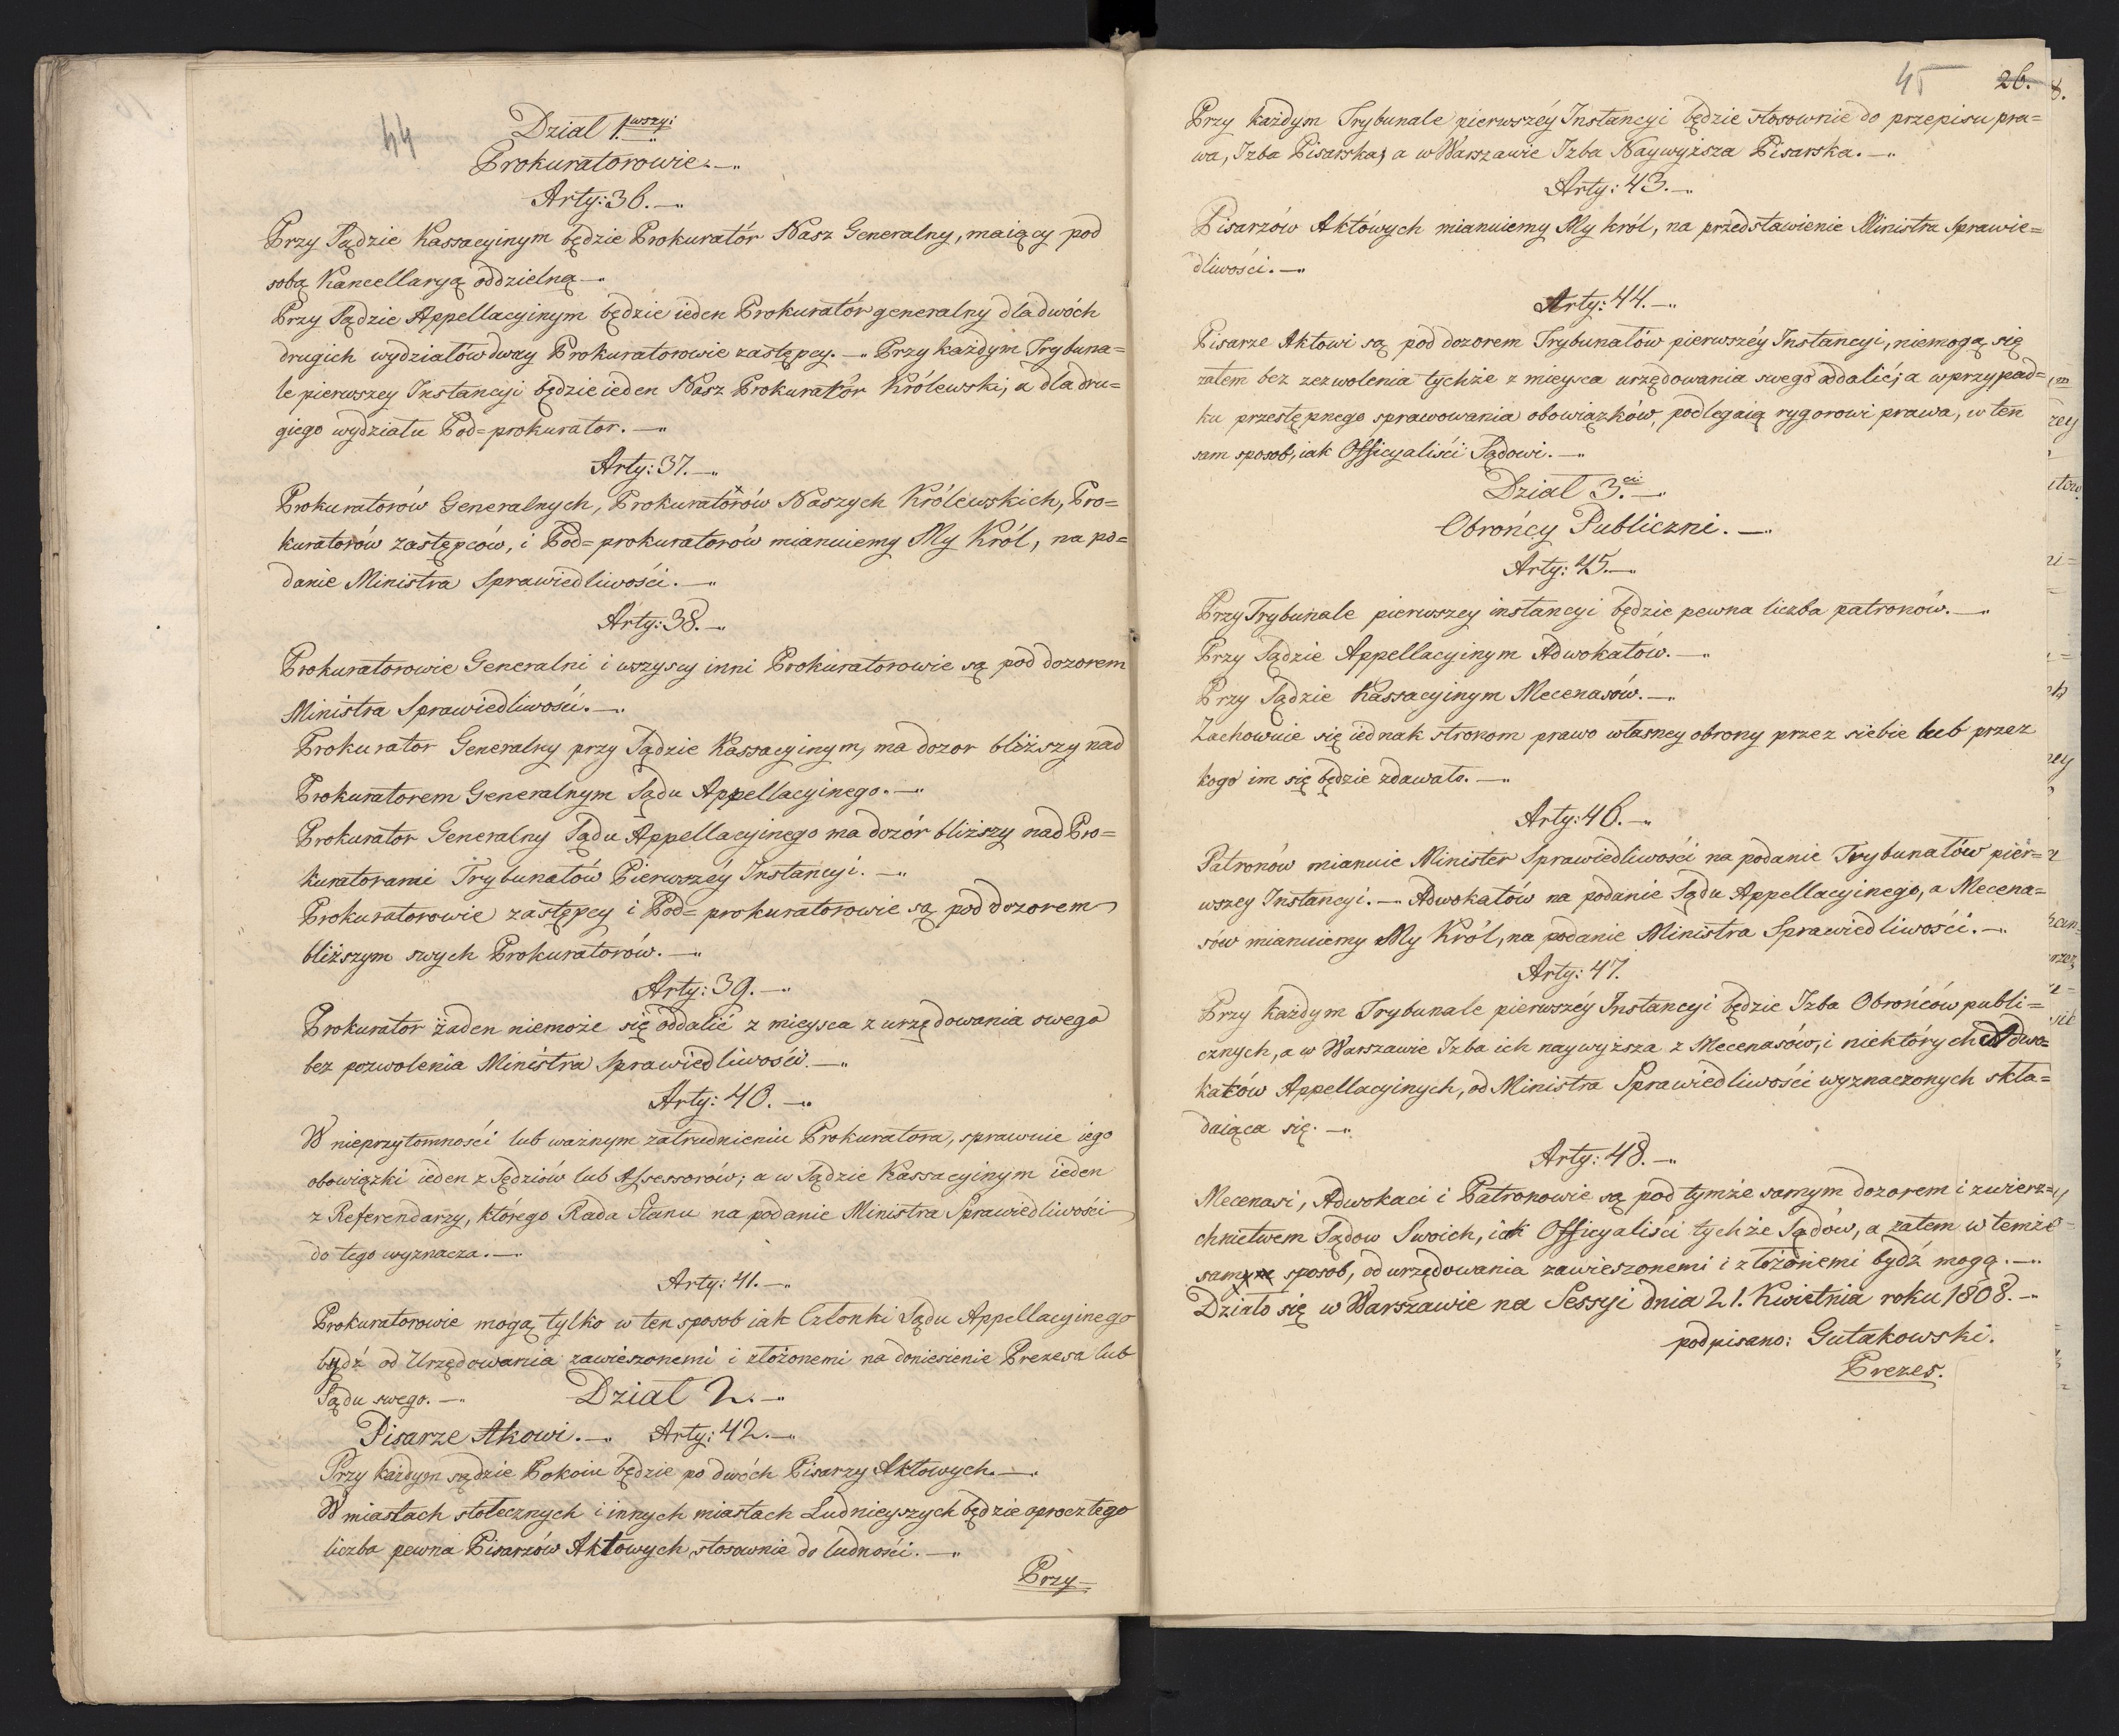 44
Dział 1.wszy:
Prokuratorowie.—
Arty: 36.—
Przy Sądzie Kassacyinym będzie Prokuratór Nasz Generalny, maiący pod
sobą Kancellaryą oddzielną—
Przy Sądzie Appellacyinym będzie ieden Prokuratór generalny dla dwóch
drugich wydziałów dway Prokuratorowie zastępcy.— Przy każdym Trybuna=
le pierwszey Instancyi będzie ieden Nasz Prokuratór Królewski, a dla dru=
giego wydziału Pod=prokurator.—
Arty: 37.—
Prokuratorów Generalnych, Prokuratorów Naszych Królewskich, Pro=
kuratorów zastępców, i Pod=prokuratorów mianuiemy My Król, na po=
danie Ministra Sprawiedliwości.—
Arty: 38.—
Prokuratorowie Generalni i wszyscy inni Prokuratorowie są pod dozorem
Ministra Sprawiedliwości.—
Prokurator Generalny przy Sądzie Kassacyinym, ma dozor bliższy nad
Prokuratorem Generalnym Sądu Appellacyinego.—
Prokurator Generalny Sądu Appellacyinego ma dozór bliższy nad Pro=
kuratorami Trybunałów Pierwszéy Instancyi.—
Prokuratorowie zastępcy i Pod=prokuratorowie są pod dozorem
bliższym swych Prokuratorów.—
Arty: 39.—
Prokurator żaden niemoże się oddalić z mieysca z urzędowania swego
bez pozwolenia Ministra Sprawiedliwości.—
Arty: 40.—
W nieprzytomności lub ważnym zatrudnieniu Prokuratora, sprawuie iego
obowiązki ieden z Sędziów lub Assessorów; a w Sądzie Kassacyinym ieden
z Referendarzy, którego Rada Stanu na podanie Ministra Sprawiedliwości
do tego wyznacza.—
Arty: 41.—
Prokuratorowie mogą tylko w ten sposob iak Członki Sądu Appellacyinego
bydź od Urzędowania zawieszonemi i złożonemi na doniesienie Prezesa lub
Sądu swego.— Dział 2.—
Pisarze Akowi.— Arty: 42.—
Przy każdym sądzie Pokoiu będzie po dwóch Pisarzy Aktowych.—
W miastach stołecznych i innych miastach Ludnieyszych będzie oprocz tego
liczba pewna Pisarzów Aktowych, stosownie do ludności.—
Przy—
45 26.
Przy każdym Trybunale pierwszéy Instancyi będzie stosownie do przepisu pra=
wa, Izba Pisarska; a w Warszawie Izba Naywyższa Pisarska.—
Arty: 43.—
Pisarzów Aktówych mianuiemy My król, na przedstawienie Ministra Sprawie=
dliwości.—
Arty: 44.—
Pisarze Aktowi są pod dozorem Trybunałów pierwszéy Instancyi, niemogą się
zatem bez zezwolenia tychże z mieysca urzędowania swego oddalić; a w przypad=
ku przestępnego sprawowania obowiązków, podlegaią rygorowi prawa, w ten
sam sposob, iak Officyaliści Sądowi.—
Dział 3.ci:—
Obrońcy Publiczni.—
Arty: 45.—
Przy Trybunale pierwszey instancyi będzie pewna liczba patronów.—
Przy Sądzie Appellacyinym Adwokatów.—
Przy Sądzie Kassacyinym Mecenasów.—
Zachowuie się iednak stronom prawo własney obrony przez siebie lub przez
kogo im się będzie zdawało.—
Arty: 46.—
Patronów mianuie Minister Sprawiedliwości na podanie Trybunałów pier=
wszey Instancyi.— Adwokatów na podanie Sądu Appellacyinego, a Mecena=
sów mianuiemy My Król, na podanie Ministra Sprawiedliwości.—
Arty: 47.
Przy każdym Trybunale pierwszéy Instancyi będzie Izba Obrońców publi=
cznych, a w Warszawie Izba ich naywyższa z Mecenasów, i niektórych Adwo=
katów Appellacyinych, od Ministra Sprawiedliwości wyznaczonych skła=
daiąca się.—
Arty: 48.—
Mecenasi, Adwokaci i Patronowie są pod tymże samym dozorem i zwierz=
chnictwem Sądow Swoich, iak Officyaliści tychże Sądów, a zatem w temże
sam sposob, od urzędowania zawieszonemi i złożonemi bydź mogą.—
Działo się w Warszawie na Sessyi dnia 21. Kwietnia roku 1808.—
podpisano: Gutakowski.
Prezes.